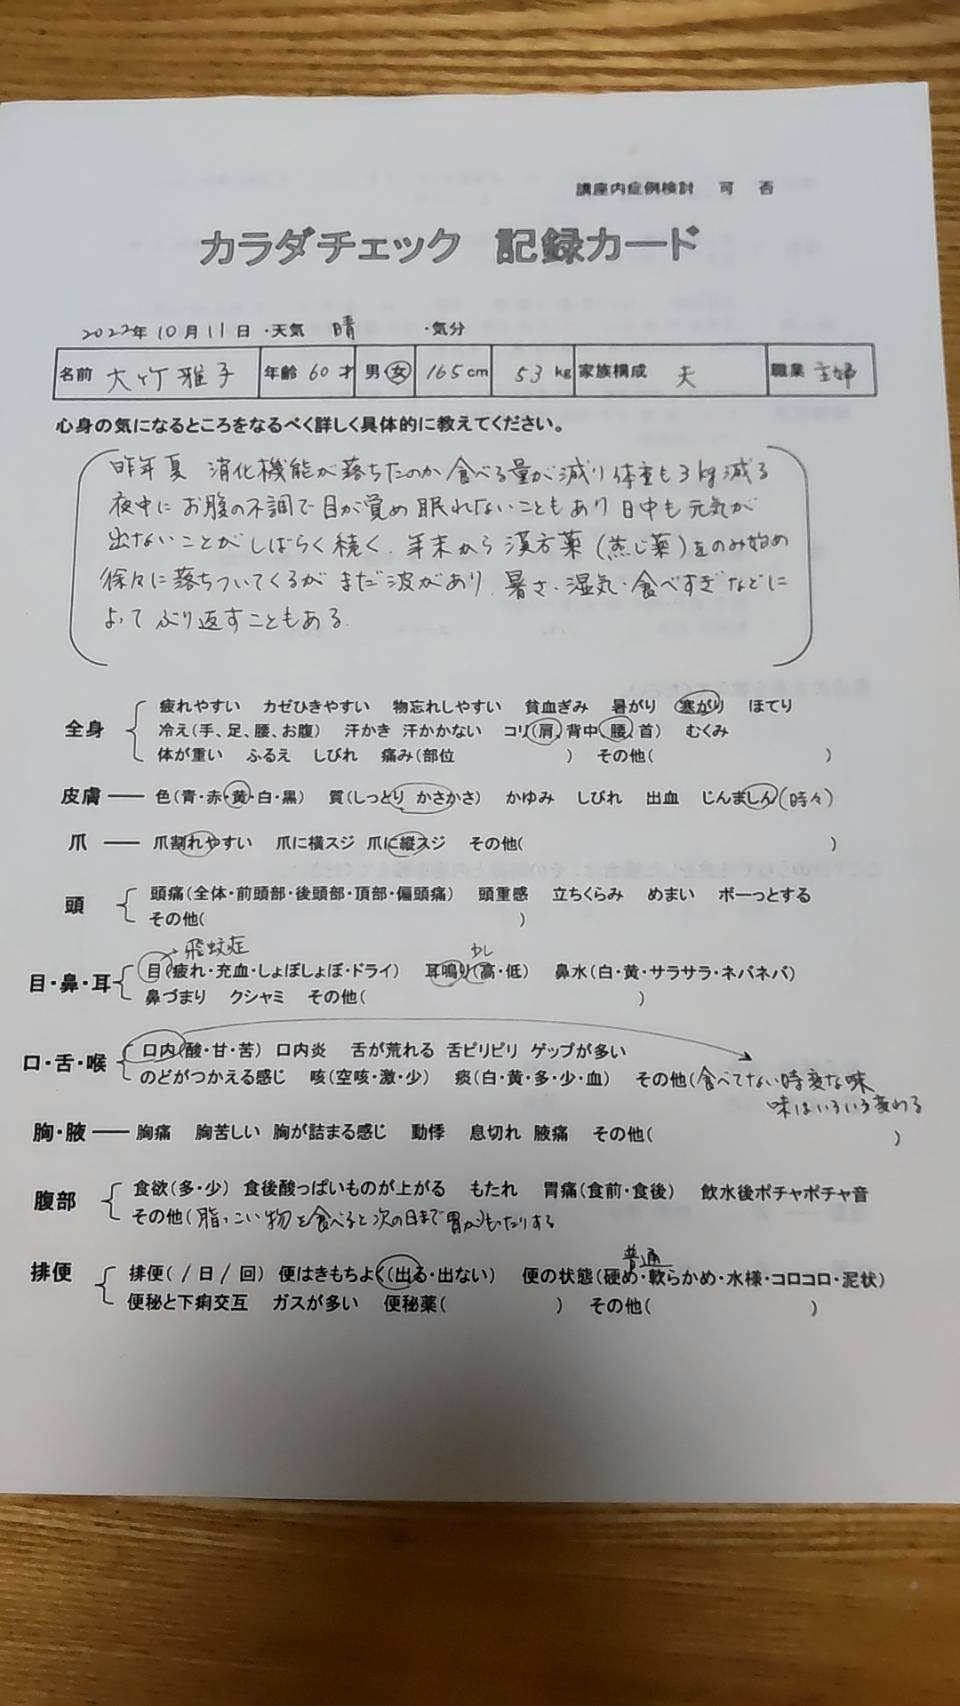 講座内症例検討 可 否
カラダチェック 記録カード
2022年10月11日 ・天気 晴 ・気分
名前 大竹 雅子 年齢 60 才 男 女 165cm 53kg 家族構成 夫 職業 主婦
心身の気になるところをなるべく詳しく具体的に教えてください。
昨年夏 消化機能が落ちたのか 食べる量が減り 体重も3kg減る
夜中に お腹の不調で 目が覚め 眠れないこともあり 日中も 元気が
出ないことが しばらく続く. 年末から 漢方薬(煎じ薬)をのみ始め
徐々に落ちついてくるが まだ波があり. 暑さ・湿気・食べすぎなどに
よって ぶり返すこともある.
疲れやすい カゼひきやすい 物忘れしやすい 貧血ぎみ 暑がり 寒がり ほてり
全身 冷え(手、足、腰、お腹) 汗かき 汗かかない コリ(肩、背中、腰、首) むくみ
体が重い ふるえ しびれ 痛み(部位 ) その他( )
皮膚 色(青・赤・黄・白・黒) 質(しっとり かさかさ) かゆみ しびれ 出血 じんましん(時々)
爪 爪割れやすい 爪に横スジ 爪に縦スジ その他( )
頭 頭痛(全体・前頭部・後頭部・頂部・偏頭痛) 頭重感 立ちくらみ めまい ボーっとする
その他( )
飛蚊症 少し
目・鼻・耳 目(疲れ・充血・しょぼしょぼ・ドライ) 耳鳴り(高・低) 鼻水(白・黄・サラサラ・ネバネバ)
鼻づまり クシャミ その他( )
口・舌・喉 口内(酸・甘・苦) 口内炎 舌が荒れる 舌ピリピリ ゲップが多い
のどがつかえる感じ 咳(空咳・激・少) 痰(白・黄・多・少・血) その他(食べてない時変な味
味はいろいろ変わる
胸・腋 胸痛 胸苦しい 胸が詰まる感じ 動悸 息切れ 腋痛 その他( )
腹部 食欲(多・少) 食後酸っぱいものが上がる もたれ 胃痛(食前・食後) 飲水後ポチャポチャ音
その他(脂っこい物を食べると次の日まで胃がもったりする
普通
排便 排便( /日/ 回) 便はきもちよく(出る・出ない) 便の状態(硬め・軟らかめ・水様・コロコロ・泥状)
便秘と下痢交互 ガスが多い 便秘薬( ) その他( )